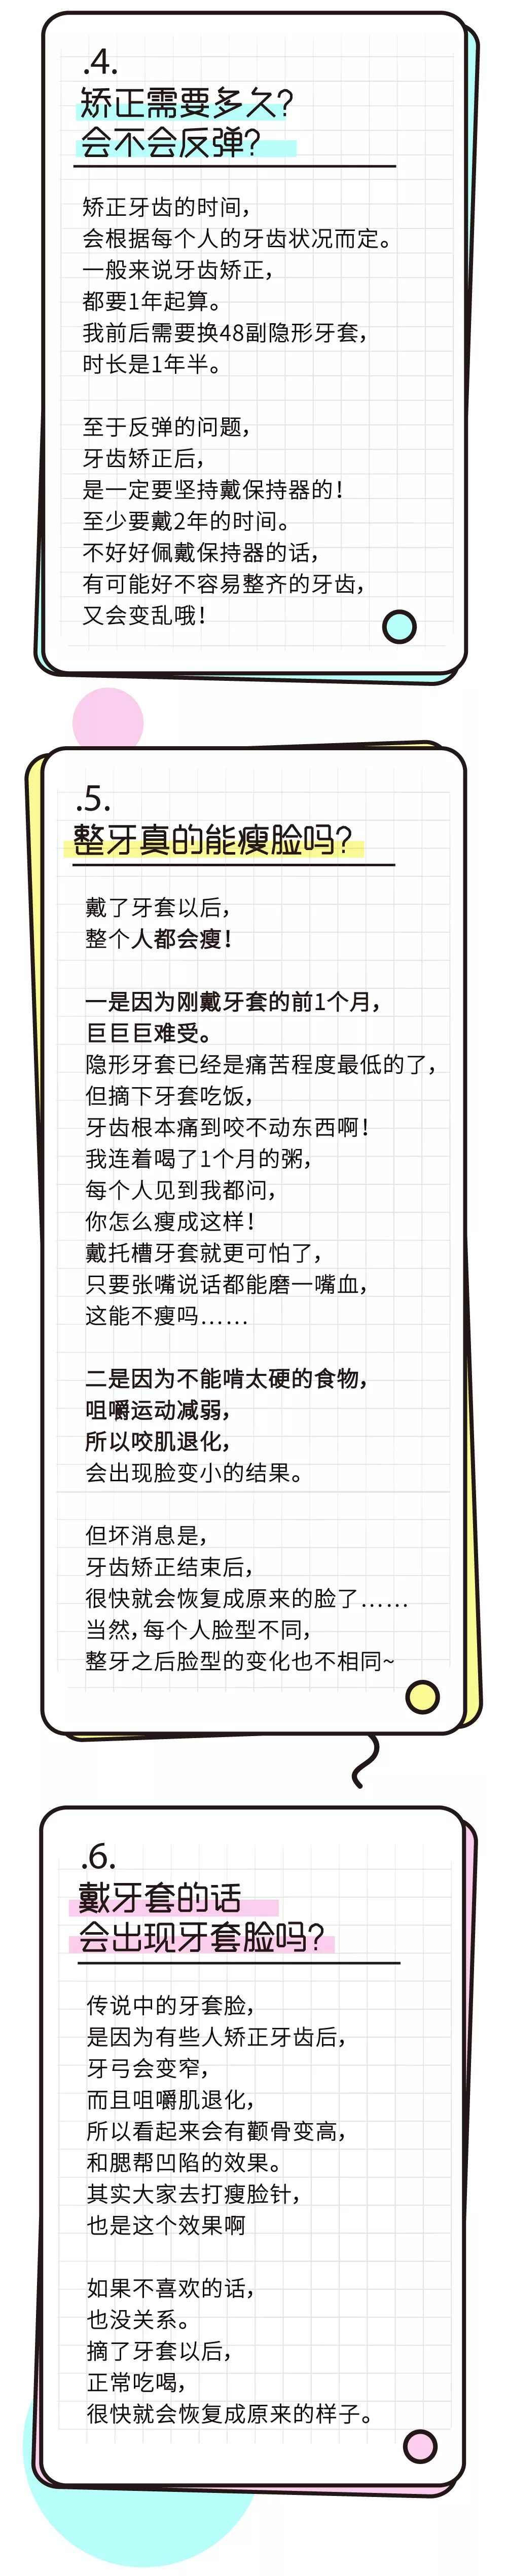 .4.
矫正需要多久?
会不会反弹?
矫正牙齿的时间，
会根据每个人的牙齿状况而定。
一般来说牙齿矫正，
都要1年起算。
我前后需要换48副隐形牙套，
时长是1年半。
至于反弹的问题，
牙齿矫正后，
是一定要坚持戴保持器的！
至少要戴2年的时间。
不好好佩戴保持器的话，
有可能好不容易整齐的牙齿，
又会变乱哦！
.5.
整牙真的能瘦脸吗?
戴了牙套以后，
整个人都会瘦！
一是因为刚戴牙套的前1个月，
巨巨巨难受。
隐形牙套已经是痛苦程度最低的了，
但摘下牙套吃饭，
牙齿根本痛到咬不动东西啊！
我连着喝了1个月的粥，
每个人见到我都问，
你怎么瘦成这样！
戴托槽牙套就更可怕了，
只要张嘴说话都能磨一嘴血，
这能不瘦吗……
二是因为不能啃太硬的食物，
咀嚼运动减弱，
所以咬肌退化，
会出现脸变小的结果。
但坏消息是，
牙齿矫正结束后，
很快就会恢复成原来的脸了……
当然，每个人脸型不同，
整牙之后脸型的变化也不相同~
.6.
戴牙套的话
会出现牙套脸吗?
传说中的牙套脸，
是因为有些人矫正牙齿后，
牙弓会变窄，
而且咀嚼肌退化，
所以看起来会有颧骨变高，
和腮帮凹陷的效果。
其实大家去打瘦脸针，
也是这个效果啊
如果不喜欢的话，
也没关系。
摘了牙套以后，
正常吃喝，
很快就会恢复成原来的样子。